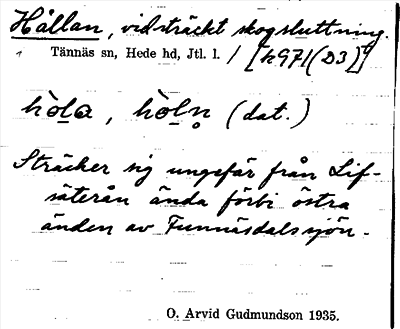 Hållan, vidsträckt skogsluttning.
Tännäs sn, Hede hd, Jtl. l. / [h971(D3)]
hòla, hòln̥ (dat.)
Sträcker sig ungefär från Lif-
säterån ända förbi östra
änden av Funnäsdalssjön.
O. Arvid Gudmundson 1935.